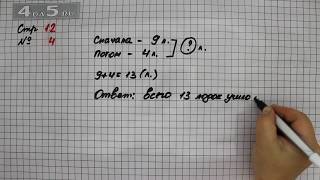 4DA5.RU
Стр 12
№ 4
Сначала - 9 л.
Потом - 4 л.
? л.
9+4=13 (л.)
Ответ: всего 13 лодок ушло